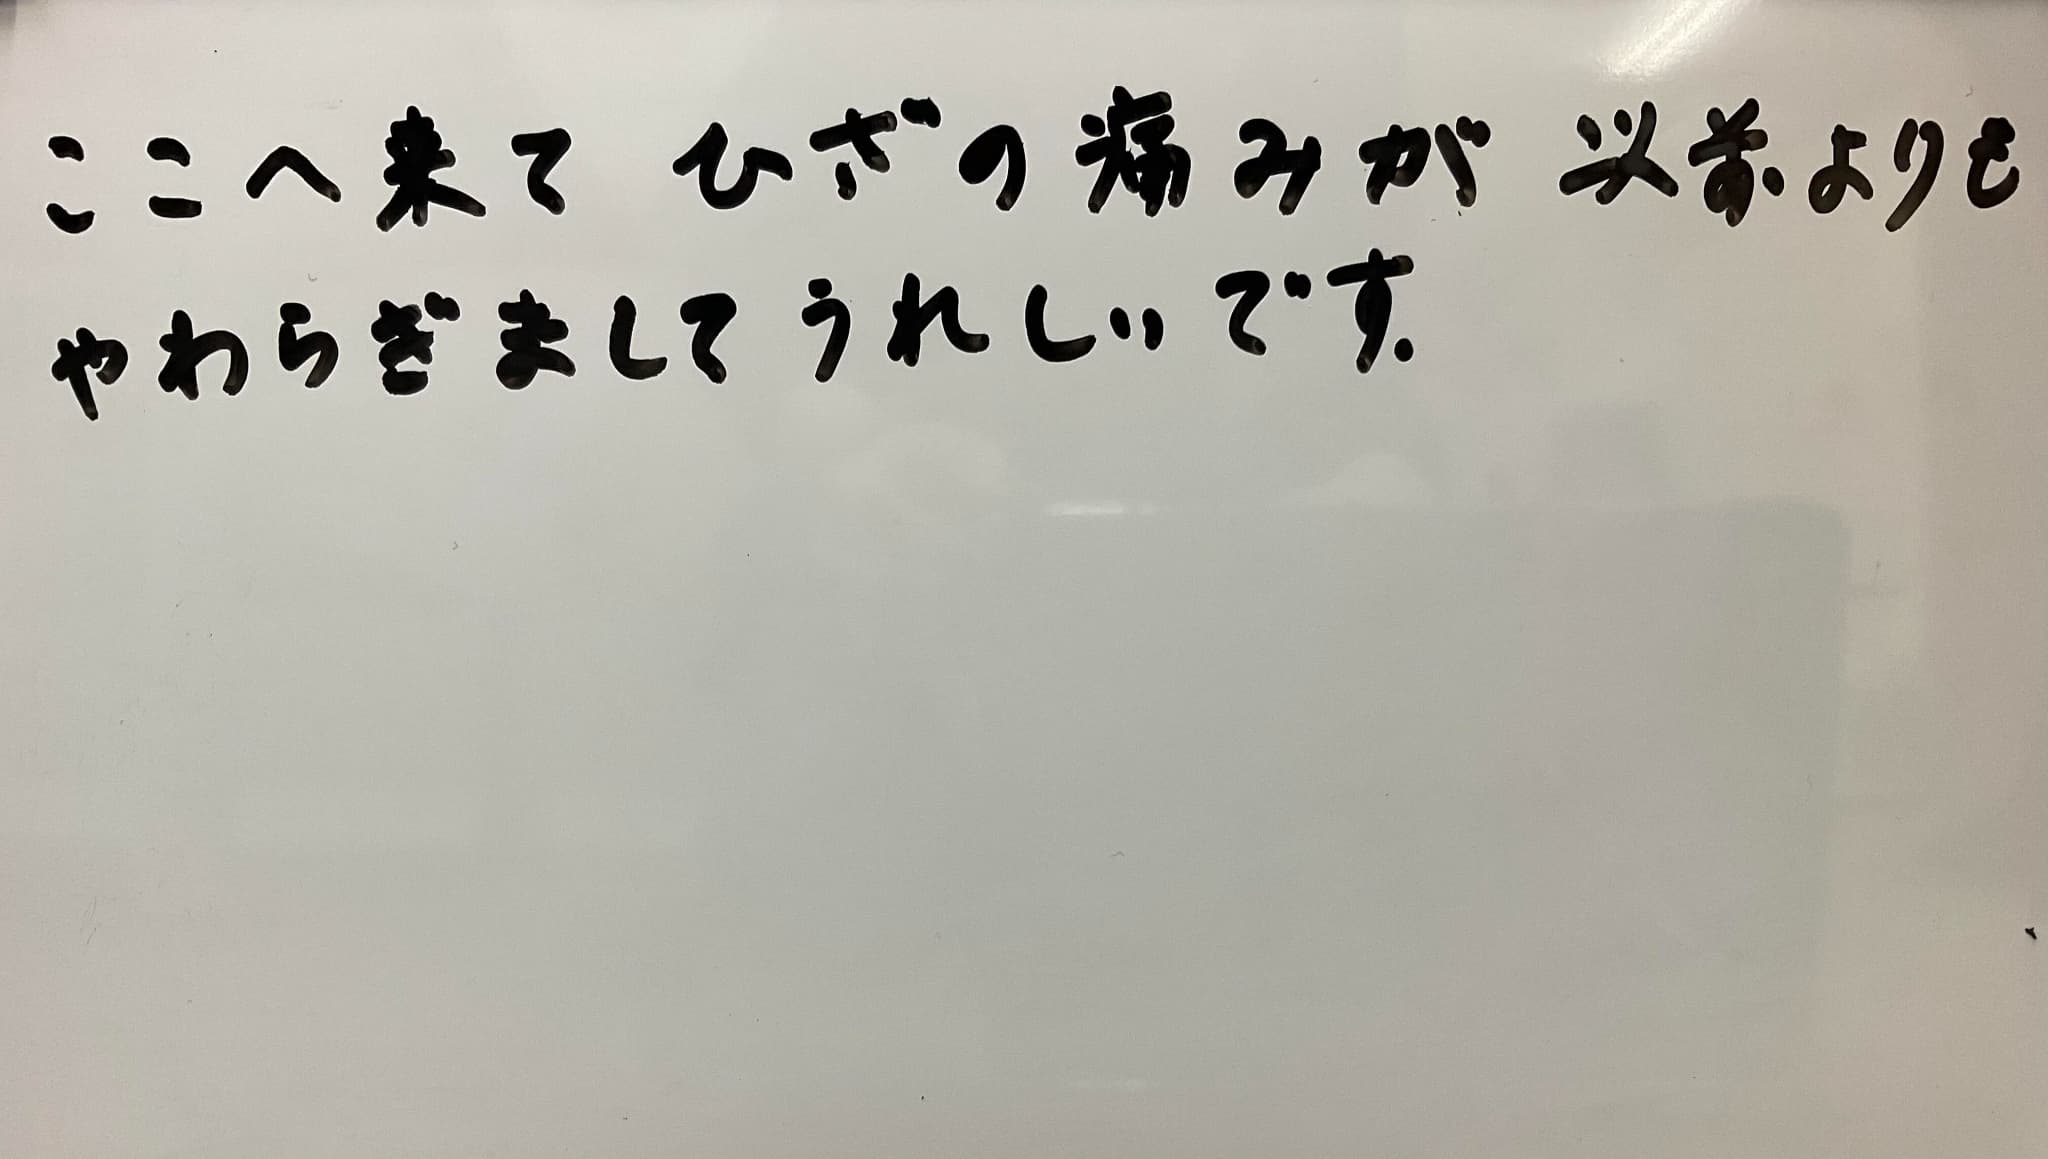 ここへ来て ひざの痛みが 以前よりも
やわらぎまして うれしいです.